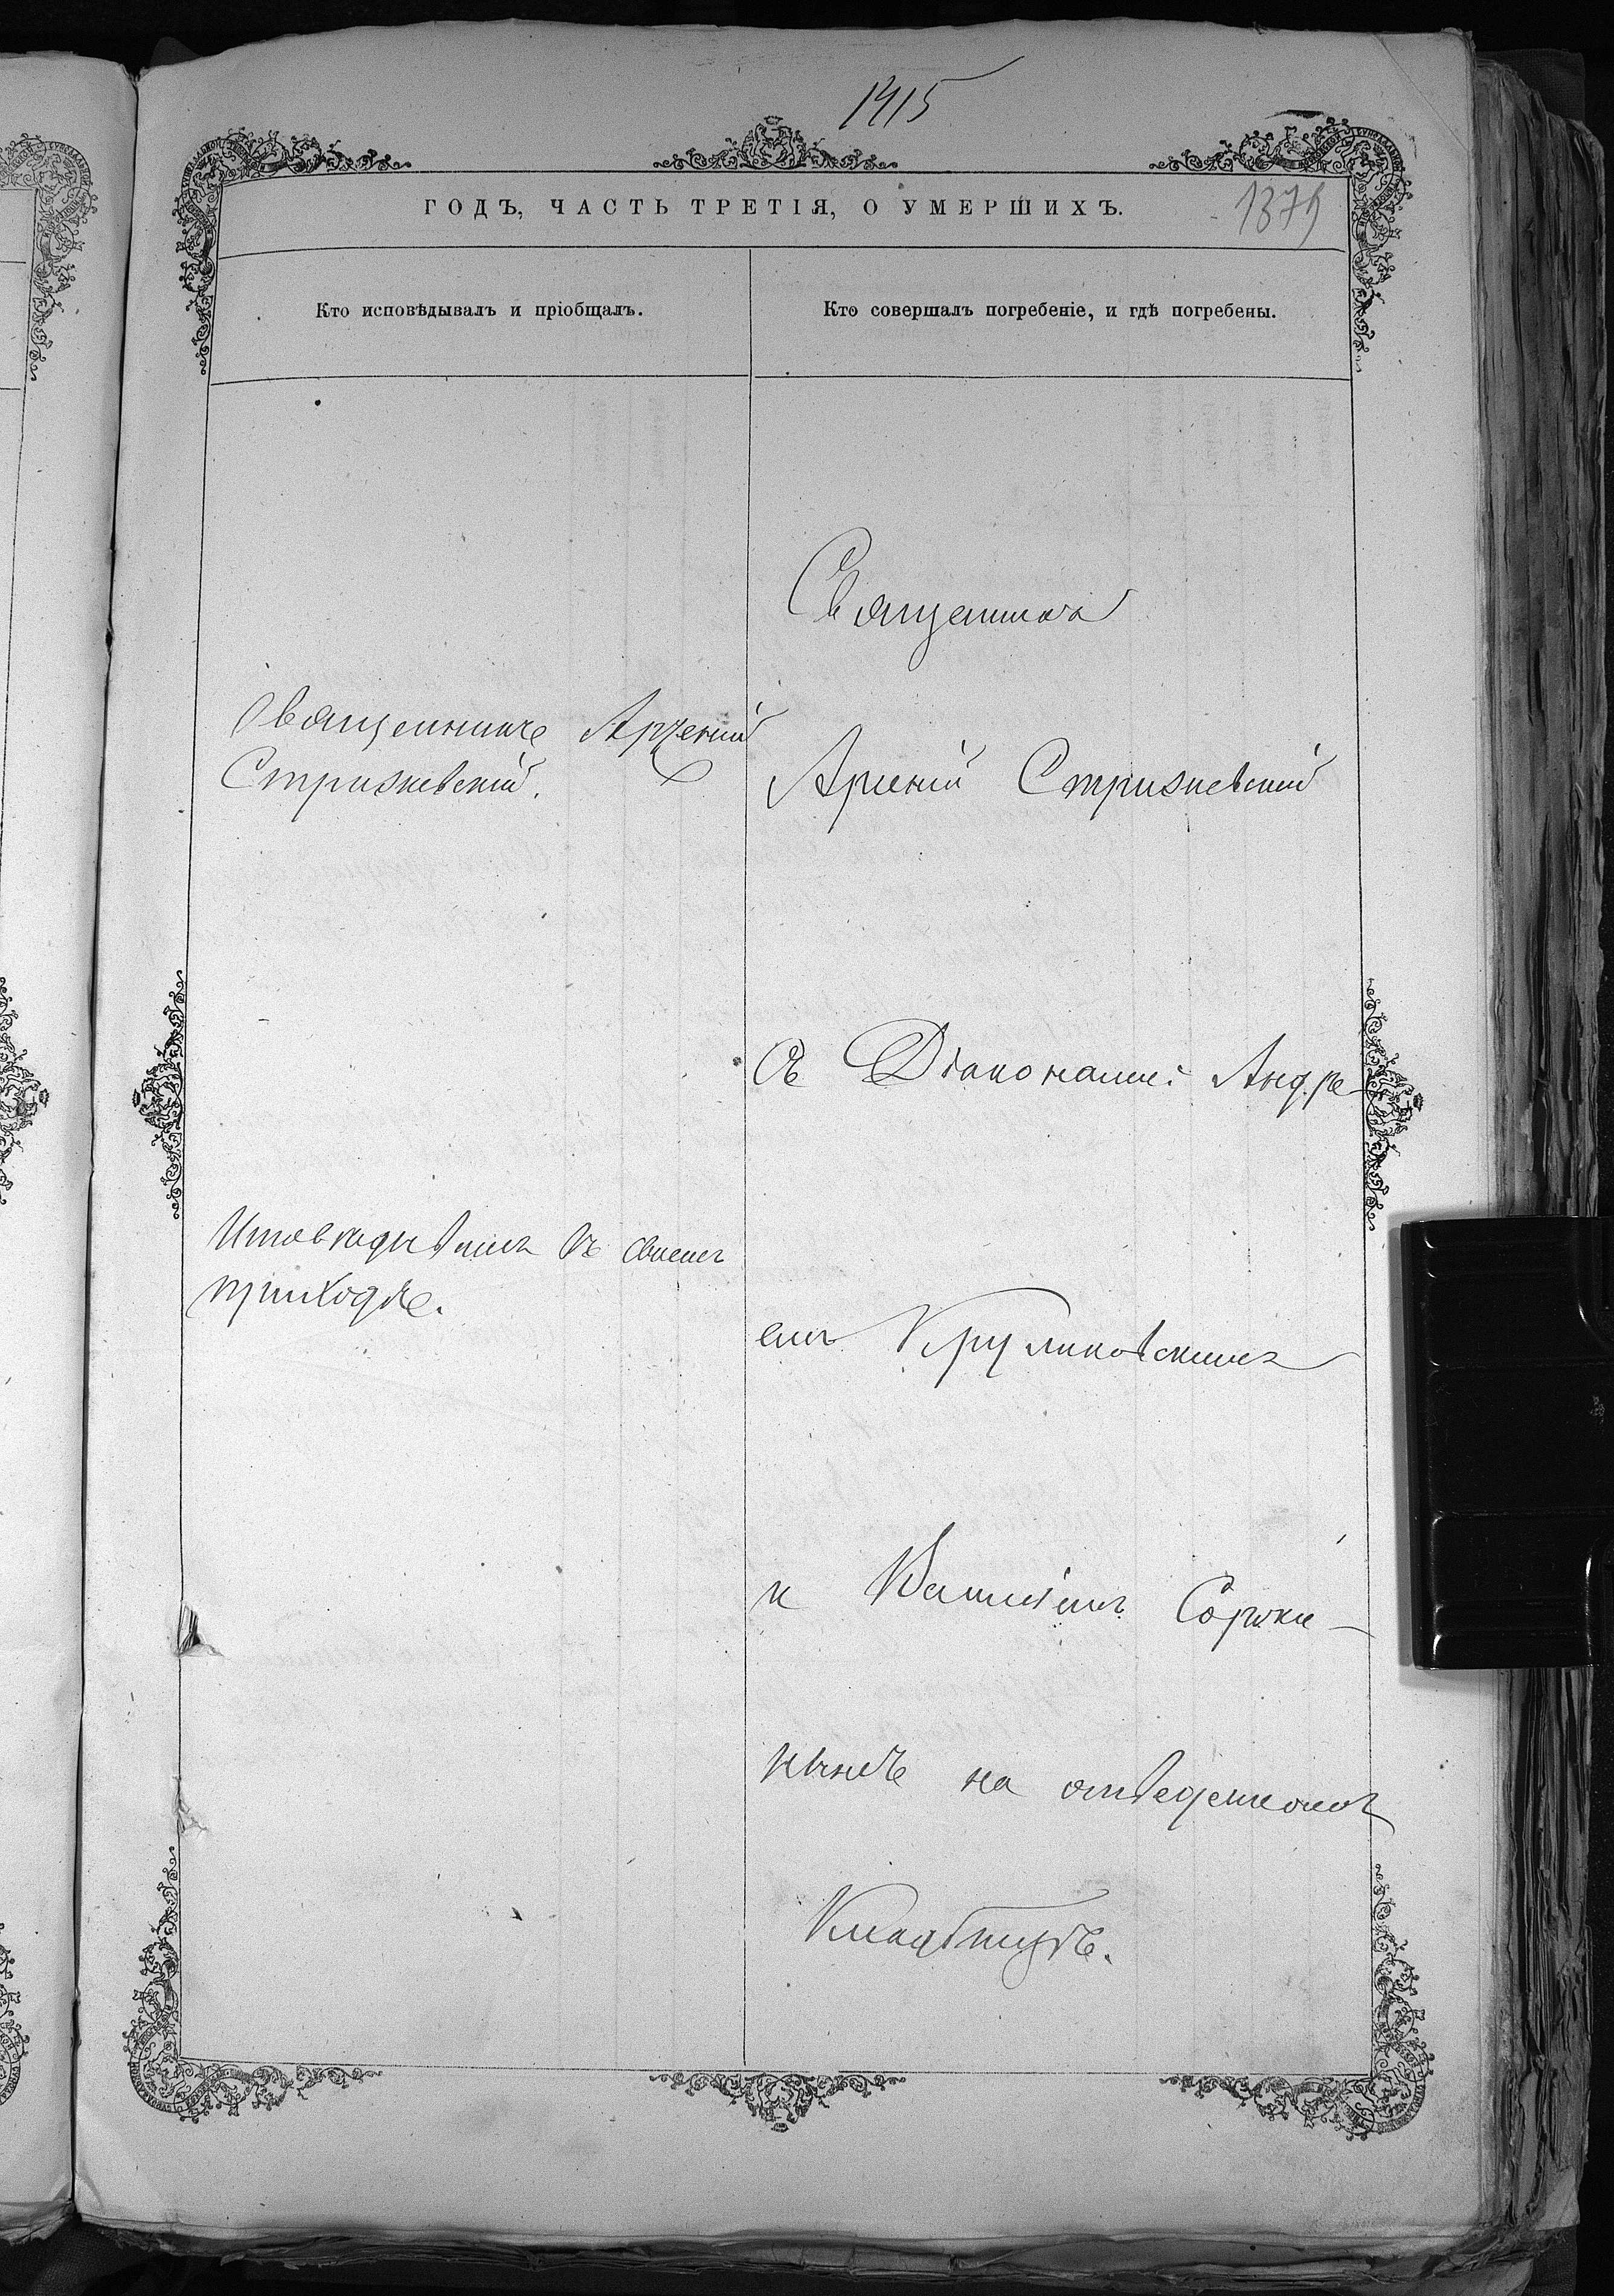 1415
ГОДЪ, ЧАСТЬ ТРЕТІЯ, О УМЕРШИХЪ.
1379
Кто исповѣдывалъ и пріобщалъ.
Кто совершалъ погребеніе, и гдѣ погребены.
Священникъ Арсеній
Стрижевскій.
въ своемъ
приходѣ.
Священникъ
Арсеній Стрижевскій
съ Діаконами: Андре-
емъ Круликовскимъ
и Сороки-
нымъ на отведенномъ
Кладбищѣ.